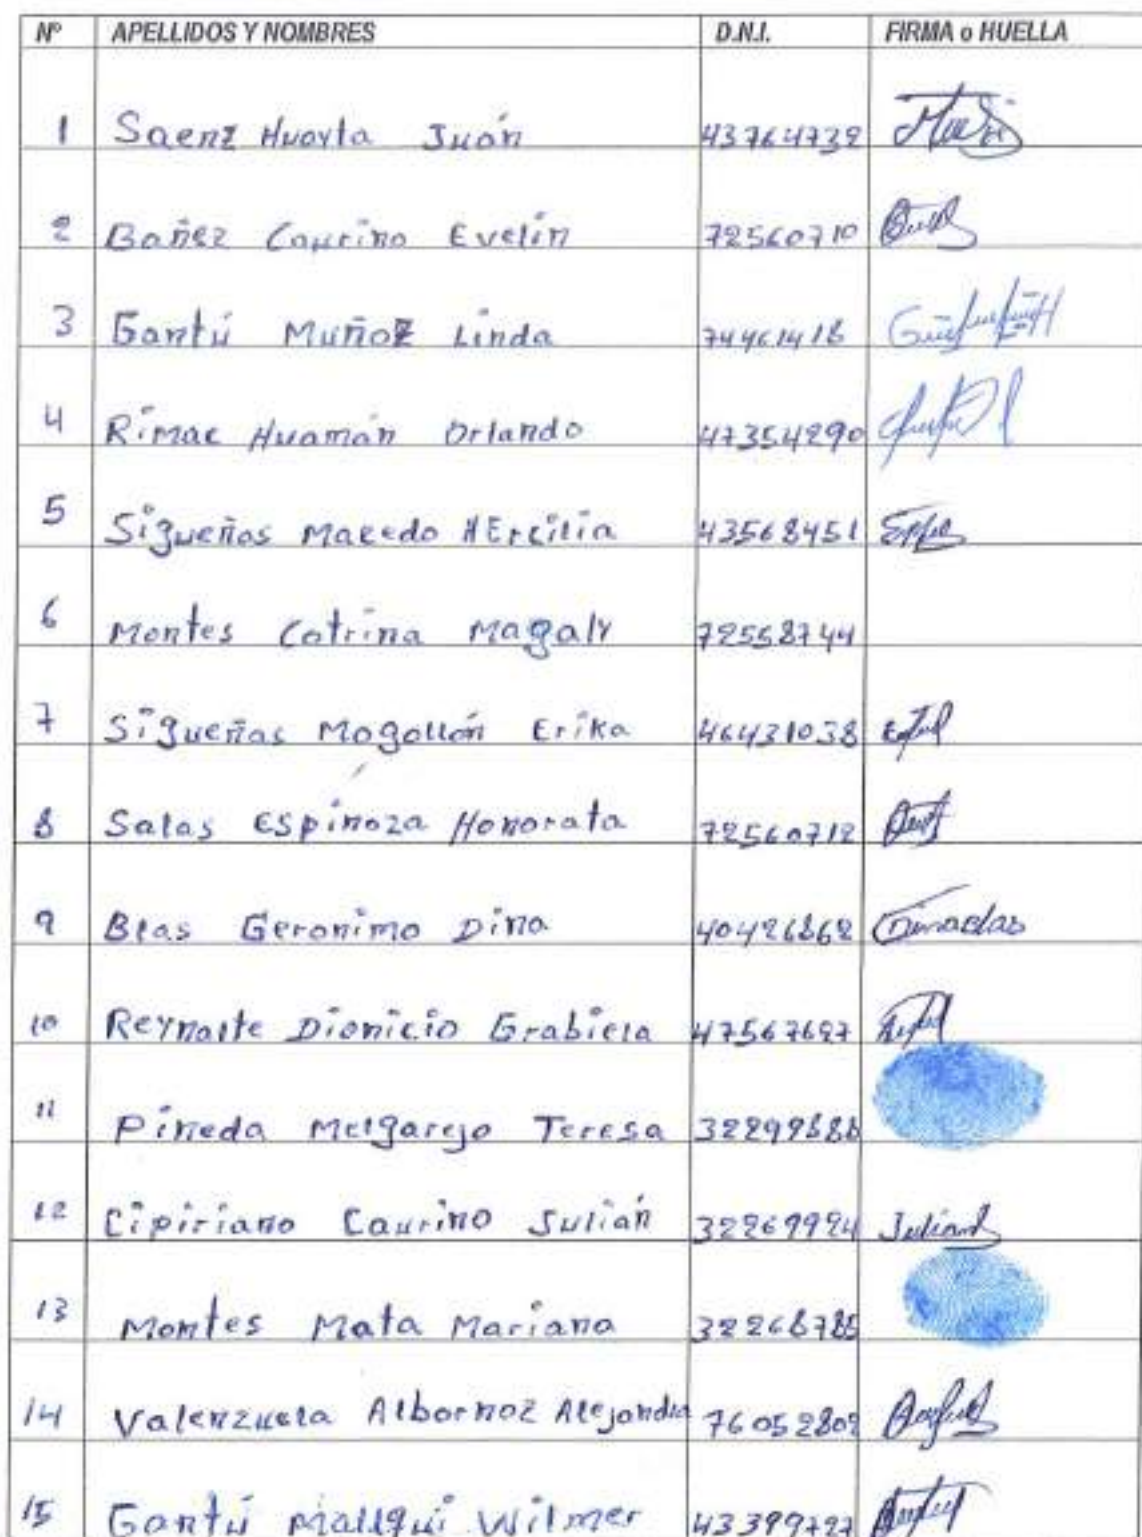 Nº APELLIDOS Y NOMBRES D.N.I. FIRMA o HUELLA
1 Saenz Huayta Juán 43764732
2 Bañez Caurino Evelin 72560710
3 Gantú Muñoz Linda 74461418
4 Rimac Huamán Orlando 47354290
5 Sigueñas Macedo HErcilia 43568451
6 Montes Catrina Magaly 72558744
7 Sigueñas Mogollón Erika 46431038
8 Salas Espinoza Honorata 72560712
9 Blas Geronimo Dina 40426862 Dinablas
10 Reynalte Dionicio Grabiela 47567697
11 Pineda Melgarejo Teresa 32292888
12 Cipiriano Caurino Julián 32269924 Julian
13 Montes Mata Mariana 32268785
14 Valenzuela Albornoz Alejandra 76052802
15 Gantú Mallqui Wilmer 43399727